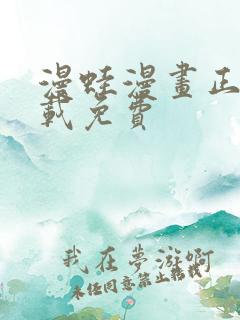 漫蛙漫畫正
載免費
我在夢游啊
未经同意禁止转载